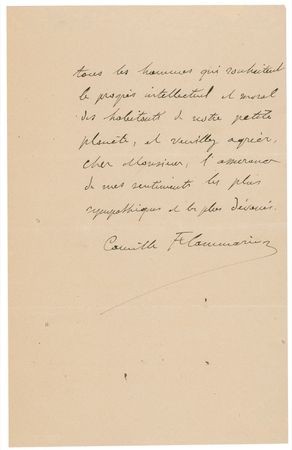 tous les hommes qui souhaitent
le progrès intellectuel et moral
des habitants de notre petite
planète, et veuillez agréer,
cher Monsieur, l'assurance
de mes sentiments les plus
sympathiques et les plus dévoués.
Camille Flammarion